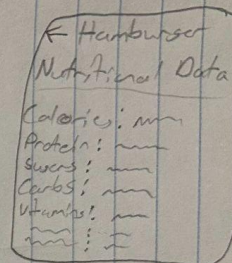 ← Hamburger
Nutritional Data
Calories:
Protein:
Sugars:
Carbs:
Vitamins: